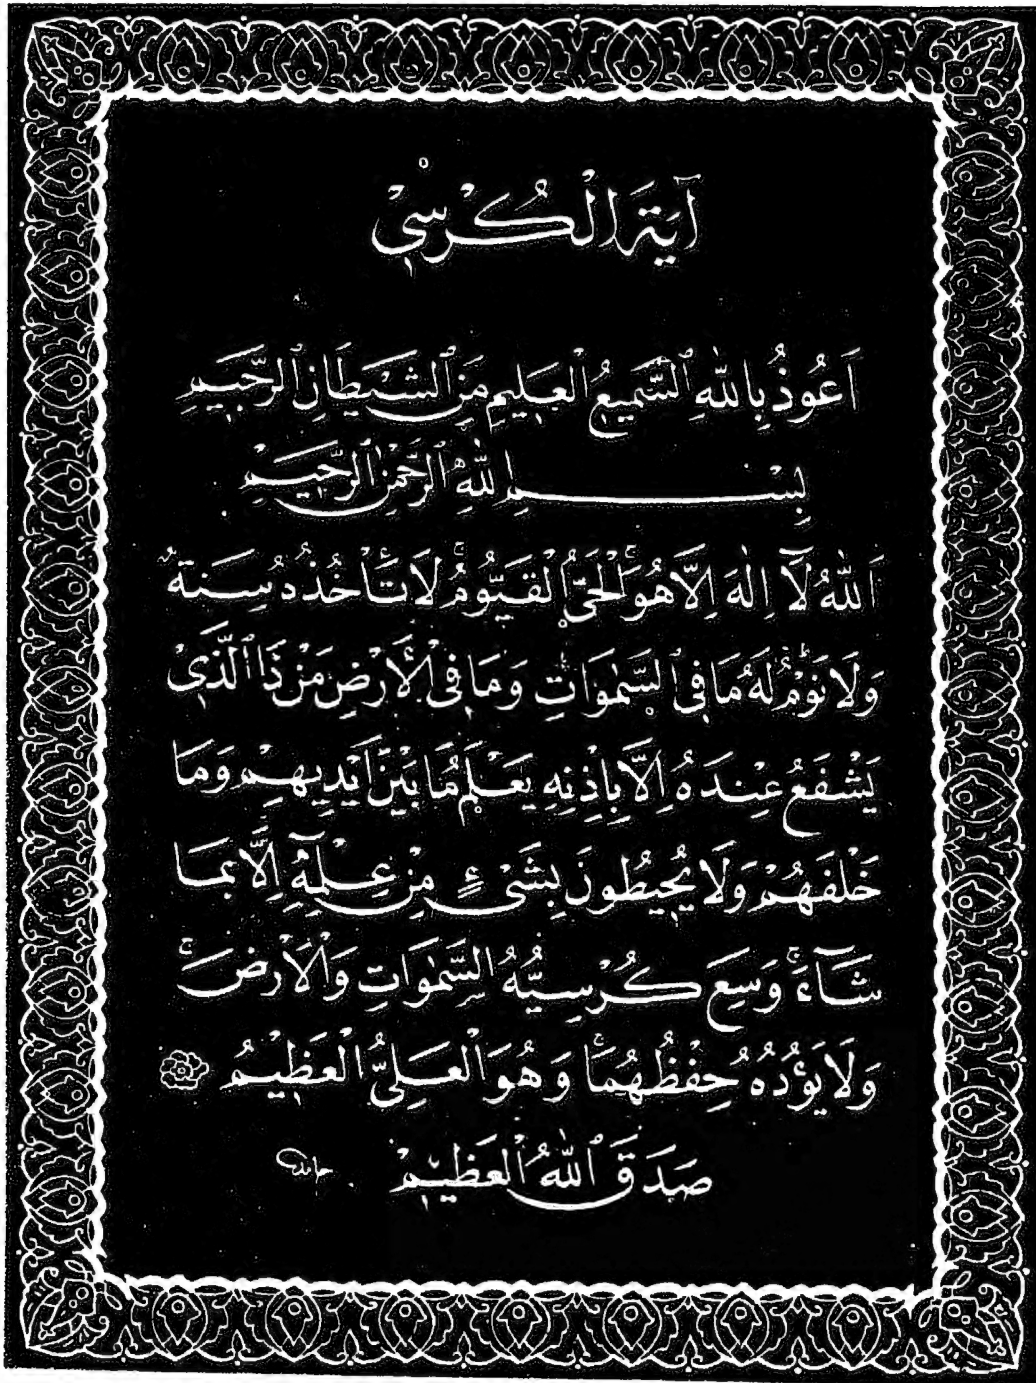 آيَةَ الْكُرْسِيْ
اَعُوذُ بِاللهِ ٱلسَّمِيعُ الْعَلِيمِ مِنَ ٱلشَّيْطَانِ ٱلرَّجِيمِ
بِسْمِ اللهِ ٱلرَّحْمٰنِ ٱلرَّحِيمِ
اَللهُ لَآ اِلٰهَ اِلَّا هُوَ الْحَىُّ الْقَيُّومُ لَا تَأْخُذُهُ سِنَةٌ
وَلَا نَوْمٌ لَهُ مَا فِى السَّمٰوَاتِ وَمَا فِى الْأَرْضِ مَنْ ذَا الَّذِى
يَشْفَعُ عِنْدَهُ اِلَّا بِاِذْنِهِ يَعْلَمُ مَا بَيْنَ اَيْدِيهِمْ وَمَا
خَلْفَهُمْ وَلَا يُحِيطُونَ بِشَىْءٍ مِنْ عِلْمِهِٓ اِلَّا بِمَا
شَآءَ وَسِعَ كُرْسِيُّهُ السَّمٰوَاتِ وَالْاَرْضَ
وَلَا يَؤُدُهُ حِفْظُهُمَا وَهُوَ الْعَلِىُّ الْعَظِيمُ
صَدَقَ ٱللهُ ٱلْعَظِيمْ